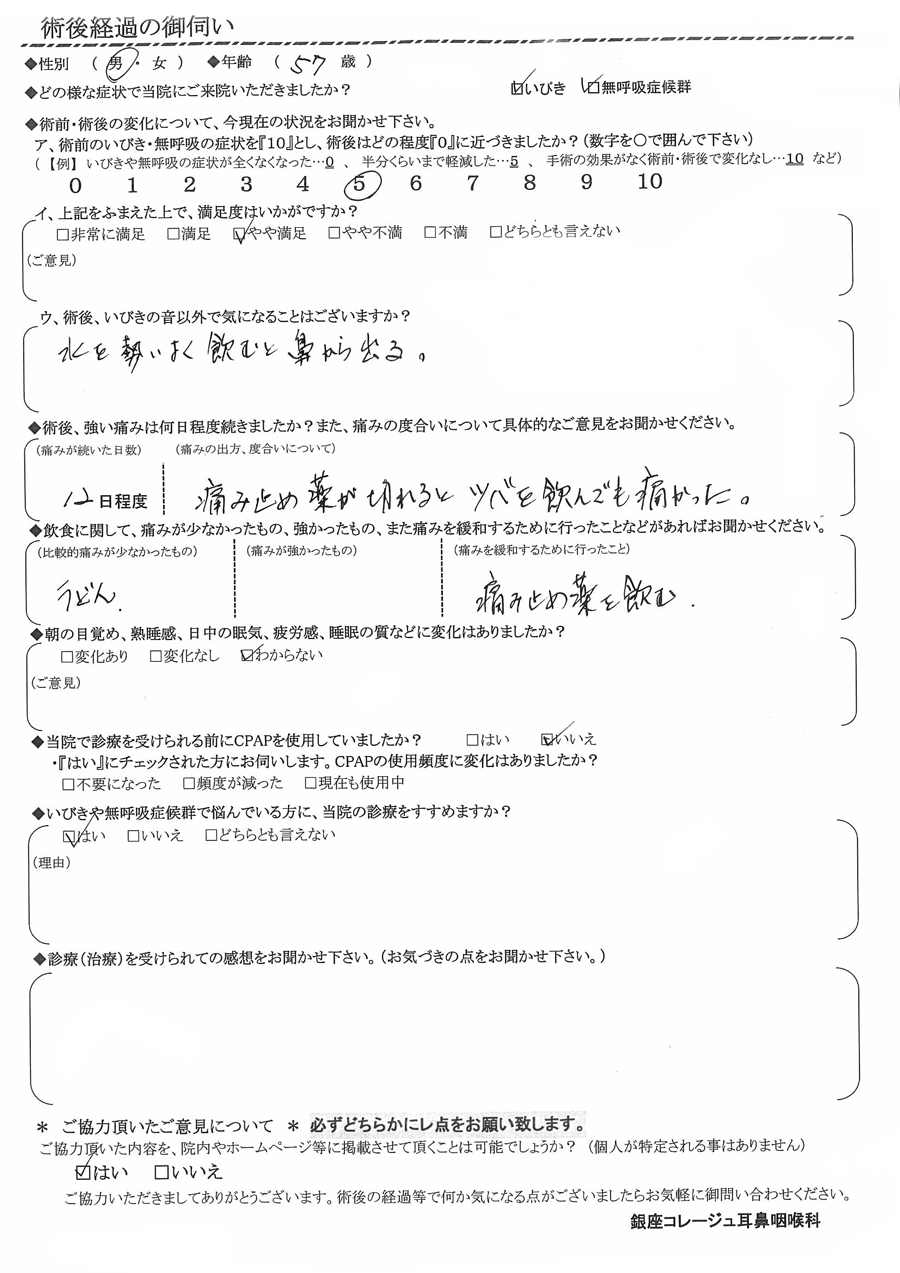 術後経過の御伺い
◆性別 （ 男 ・ 女 ） ◆年齢 （ 57 歳 ）
◆どの様な症状で当院にご来院いただきましたか？ ☑いびき ☑無呼吸症候群
◆術前・術後の変化について、今現在の状況をお聞かせ下さい。
ア、術前のいびき・無呼吸の症状を『10』とし、術後はどの程度『0』に近づきましたか？（数字を〇で囲んで下さい）
（ 【例】 いびきや無呼吸の症状が全くなくなった…0 、 半分くらいまで軽減した…5 、 手術の効果がなく術前・術後で変化なし…10 など）
0 1 2 3 4 5 6 7 8 9 10
イ、上記をふまえた上で、満足度はいかがですか？
□非常に満足 □満足 ☑やや満足 □やや不満 □不満 □どちらとも言えない
（ご意見）
ウ、術後、いびきの音以外で気になることはございますか？
水を勢いよく飲むと鼻から出る。
◆術後、強い痛みは何日程度続きましたか？また、痛みの度合いについて具体的なご意見をお聞かせください。
（痛みが続いた日数） （痛みの出方、度合いについて）
12日程度 痛み止め薬が切れるとツバを飲んでも痛かった。
◆飲食に関して、痛みが少なかったもの、強かったもの、また痛みを緩和するために行ったことなどがあればお聞かせください。
（比較的痛みが少なかったもの） （痛みが強かったもの） （痛みを緩和するために行ったこと）
うどん. 痛み止め薬を飲む.
◆朝の目覚め、熟睡感、日中の眠気、疲労感、睡眠の質などに変化はありましたか？
□変化あり □変化なし ☑わからない
（ご意見）
◆当院で診療を受けられる前にCPAPを使用していましたか？ □はい ☑いいえ
・『はい』にチェックされた方にお伺いします。CPAPの使用頻度に変化はありましたか？
□不要になった □頻度が減った □現在も使用中
◆いびきや無呼吸症候群で悩んでいる方に、当院の診療をすすめますか？
☑はい □いいえ □どちらとも言えない
（理由）
◆診療（治療）を受けられての感想をお聞かせ下さい。（お気づきの点をお聞かせ下さい。）
＊ ご協力頂いたご意見について ＊ 必ずどちらかにレ点をお願い致します。
ご協力頂いた内容を、院内やホームページ等に掲載させて頂くことは可能でしょうか？ （個人が特定される事はありません）
☑はい □いいえ
ご協力いただきましてありがとうございます。術後の経過等で何か気になる点がございましたらお気軽に御問い合わせください。
銀座コレージュ耳鼻咽喉科